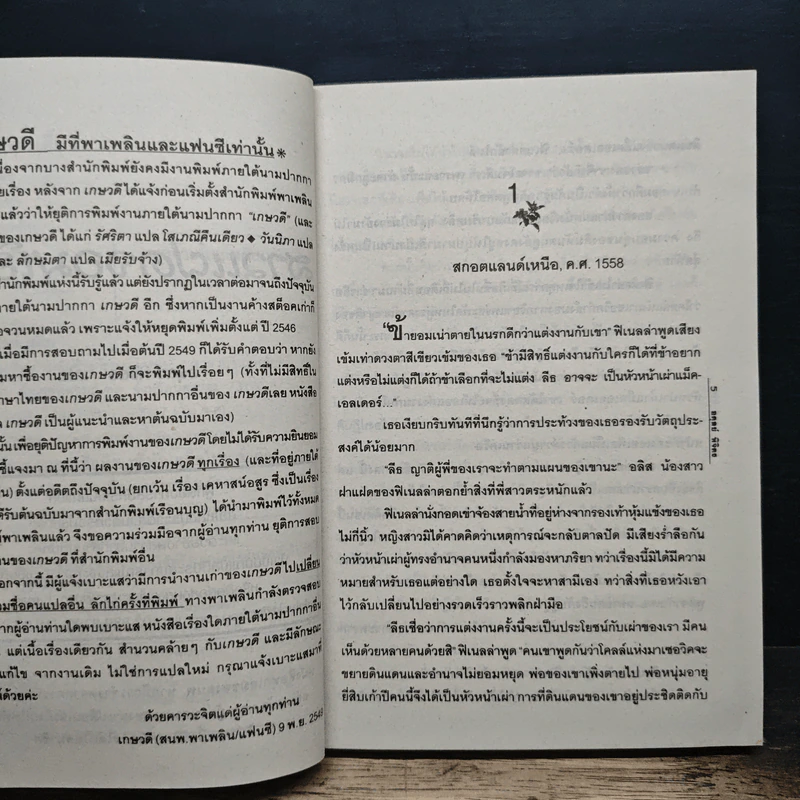 ษวดี มีที่พาเพลินและแฟนซีเท่านั้น*
องจากบางสำนักพิมพ์ยังคงมีงานพิมพ์ภายใต้นามปากกา
ยเรื่อง หลังจาก เกษวดี ได้แจ้งก่อนเริ่มตั้งสำนักพิมพ์พาเพลิน
แล้วว่าให้ยุติการพิมพ์งานภายใต้นามปากกา "เกษวดี" (และ
ของเกษวดี ได้แก่ รัศริตา แปล โสเภณีคืนเดียว ◆ วันนิภา แปล
ละ ลักษมิตา แปล เมียรับจ้าง)
สำนักพิมพ์แห่งนี้รับรู้แล้ว แต่ยังปรากฏในเวลาต่อมาจนถึงปัจจุบัน
ภายใต้นามปากกา เกษวดี อีก ซึ่งหากเป็นงานค้างสต็อคเก่าก็
อจวนหมดแล้ว เพราะแจ้งให้หยุดพิมพ์เพิ่มตั้งแต่ ปี 2546
เมื่อมีการสอบถามไปเมื่อต้นปี 2549 ก็ได้รับคำตอบว่า หากยัง
มหาซื้องานของเกษวดี ก็จะพิมพ์ไปเรื่อยๆ (ทั้งที่ไม่มีสิทธิ์ใน
ภาษาไทยของเกษวดี และนามปากกาอื่นของ เกษวดีเลย หนังสือ
เกษวดี เป็นผู้แนะนำและหาต้นฉบับมาเอง)
นั้น เพื่อยุติปัญหาการพิมพ์งานของเกษวดีโดยไม่ได้รับความยินยอม
ชี้แจงมา ณ ที่นี้ว่า ผลงานของเกษวดีทุกเรื่อง (และที่อยู่ภายใต้
น) ตั้งแต่อดีตถึงปัจจุบัน (ยกเว้น เรื่อง เคหาสน์อสูร ซึ่งเป็นเรื่อง
ดีรับต้นฉบับมาจากสำนักพิมพ์เรือนบุญ) ได้นำมาพิมพ์ไว้ทั้งหมด
พ์พาเพลินแล้ว จึงขอความร่วมมือจากผู้อ่านทุกท่าน ยุติการสอบ
นของเกษวดี ที่สำนักพิมพ์อื่น
อกจากนี้ มีผู้แจ้งเบาะแสว่ามีการนำงานเก่าของเกษวดีไปเปลี่ยน
มชื่อคนแปลอื่น ลักไก่ครั้งที่พิมพ์ ทางพาเพลินกำลังตรวจสอบ
ากผู้อ่านท่านใดพบเบาะแส หนังสือเรื่องใดภายใต้นามปากกาอื่น
แต่เนื้อเรื่องเดียวกัน สำนวนคล้ายๆ กับเกษวดี และมีลักษณะ
แก้ไข จากงานเดิม ไม่ใช่การแปลใหม่ กรุณาแจ้งเบาะแสมาที่
ด้วยค่ะ
ด้วยคารวะจิตแด่ผู้อ่านทุกท่าน
เกษวดี (สนพ.พาเพลิน/แฟนซี) 9 พ.ย. 2549
1
สกอตแลนด์เหนือ, ค.ศ. 1558
"ข้ายอมเน่าตายในนรกดีกว่าแต่งงานกับเขา" ฟิเนลล่าพูดเสียง
เข้มเท่าดวงตาสีเขียวเข้มของเธอ "ข้ามีสิทธิ์แต่งงานกับใครก็ได้ที่ข้าอยาก
แต่งหรือไม่แต่งก็ได้ถ้าข้าเลือกที่จะไม่แต่ง ลีธ อาจจะ เป็นหัวหน้าเผ่าแม็ค-
เอลเดอร์..."
เธอเงียบกริบทันทีที่นึกรู้ว่าการประท้วงของเธอรองรับวัตถุประ-
สงค์ได้น้อยมาก
"ลีธ ญาติผู้พี่ของเราจะทำตามแผนของเขานะ" อลิส น้องสาว
ฝาแฝดของฟิเนลล่าตอกย้ำสิ่งที่พี่สาวตระหนักแล้ว
ฟิเนลล่านั่งกอดเข่าจ้องสายน้ำที่อยู่ห่างจากรองเท้าหุ้มแข้งของเธอ
ไม่กี่นิ้ว หญิงสาวมิได้คาดคิดว่าเหตุการณ์จะกลับตาลปัด มีเสียงร่ำลือกัน
ว่าหัวหน้าเผ่าผู้ทรงอำนาจคนหนึ่งกำลังมองหาภริยา ทว่าเรื่องนี้มิได้มีความ
หมายสำหรับเธอแต่อย่างใด เธอตั้งใจจะหาสามีเอง ทว่าสิ่งที่เธอหวังเอา
ไว้กลับเปลี่ยนไปอย่างรวดเร็วราวพลิกฝ่ามือ
"ลีธเชื่อว่าการแต่งงานครั้งนี้จะเป็นประโยชน์กับเผ่าของเรา มีคน
เห็นด้วยหลายคนด้วยสิ" ฟิเนลล่าพูด "คนเขาพูดกันว่าโคลล์แห่งมาเซอวิคจะ
ขยายดินแดนและอำนาจไม่ยอมหยุด พ่อของเขาเพิ่งตายไป พ่อหนุ่มอายุ
ยี่สิบเก้าปีคนนี้จึงได้เป็นหัวหน้าเผ่า การที่ดินแดนของเขาอยู่ประชิดติดกับ
5